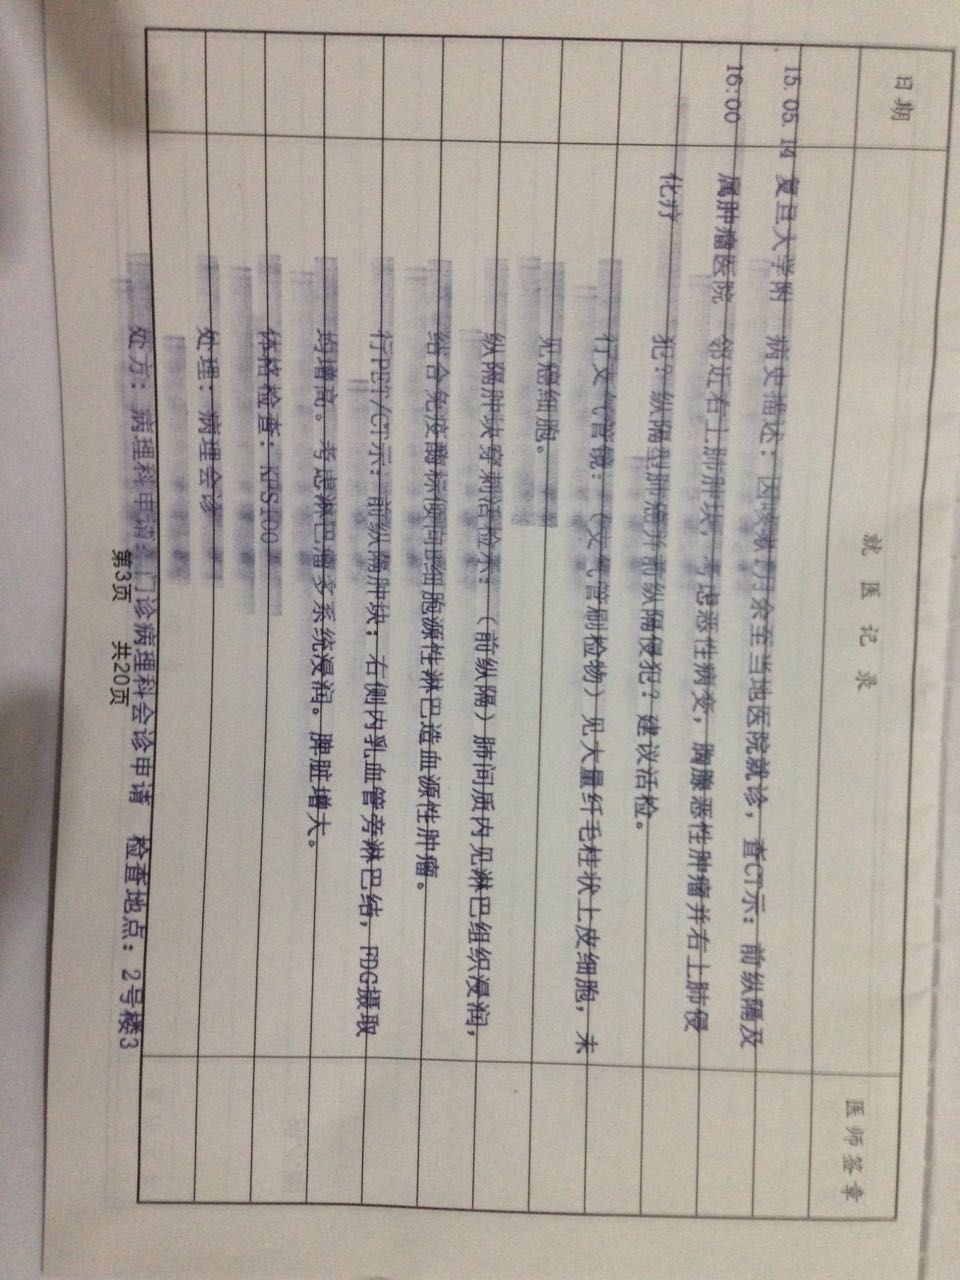 日期 就医记录 医师签章
15.05.14 复旦大学附 病史描述：因咳嗽1月余至当地医院就诊，查CT示：前纵隔及
16:00 属肿瘤医院 邻近右上肺肿块，考虑恶性病变，胸腺恶性肿瘤并右上肺侵
化疗 犯？纵隔型肺癌并前纵隔侵犯？建议活检。
行支气管镜：（支气管刷检物）见大量纤毛柱状上皮细胞，未
见癌细胞。
纵隔肿块穿刺活检示：（前纵隔）肺间质内见淋巴组织浸润，
结合免疫酶标倾向B细胞源性淋巴造血源性肿瘤。
行PET/CT示：前纵隔肿块；右侧内乳血管旁淋巴结，FDG摄取
均增高。考虑淋巴瘤多系统浸润。脾脏增大。
体格检查：KPS100
处理：病理会诊
处方：病理科申请:门诊病理科会诊申请 检查地点：2号楼3
第3页 共20页